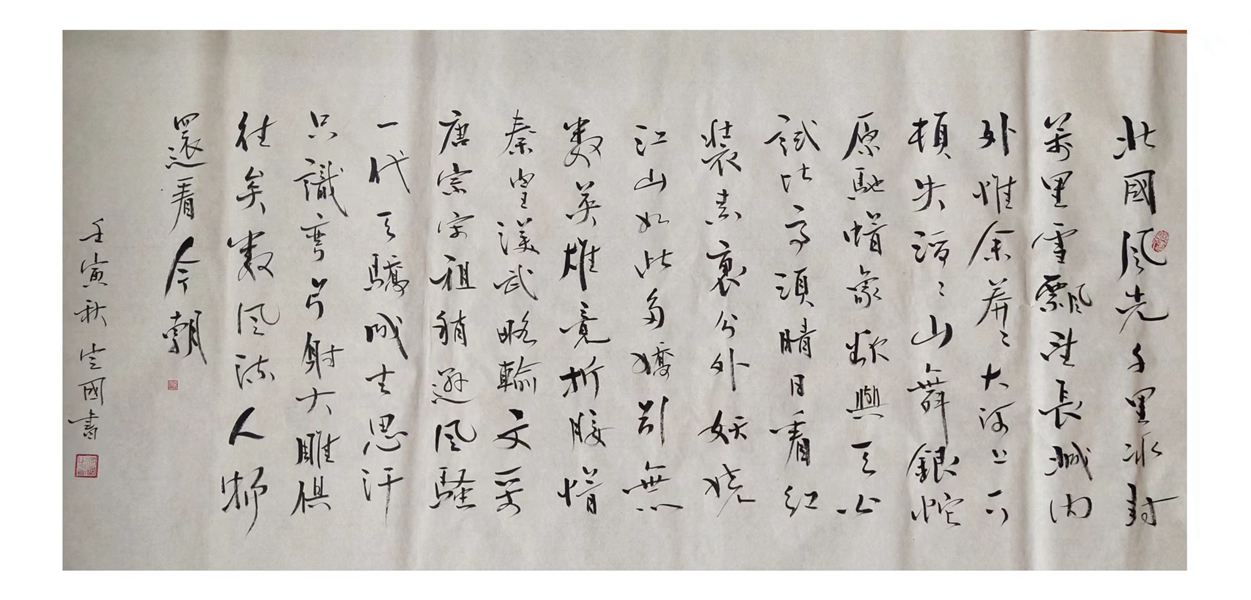 北國風光千里冰封
萬里雪飄望長城内
外惟余莽〻大河上下
頓失滔〻山舞銀蛇
原馳蜡象欲與天公
試比高須晴日看紅
裝素裹分外妖嬈
江山如此多嬌引無
數英雄竟折腰惜
秦皇漢武略輸文采
唐宗宋祖稍遜風騷
一代天驕成吉思汗
只識彎弓射大雕俱
往矣數風流人物
還看今朝
壬寅秋定國書